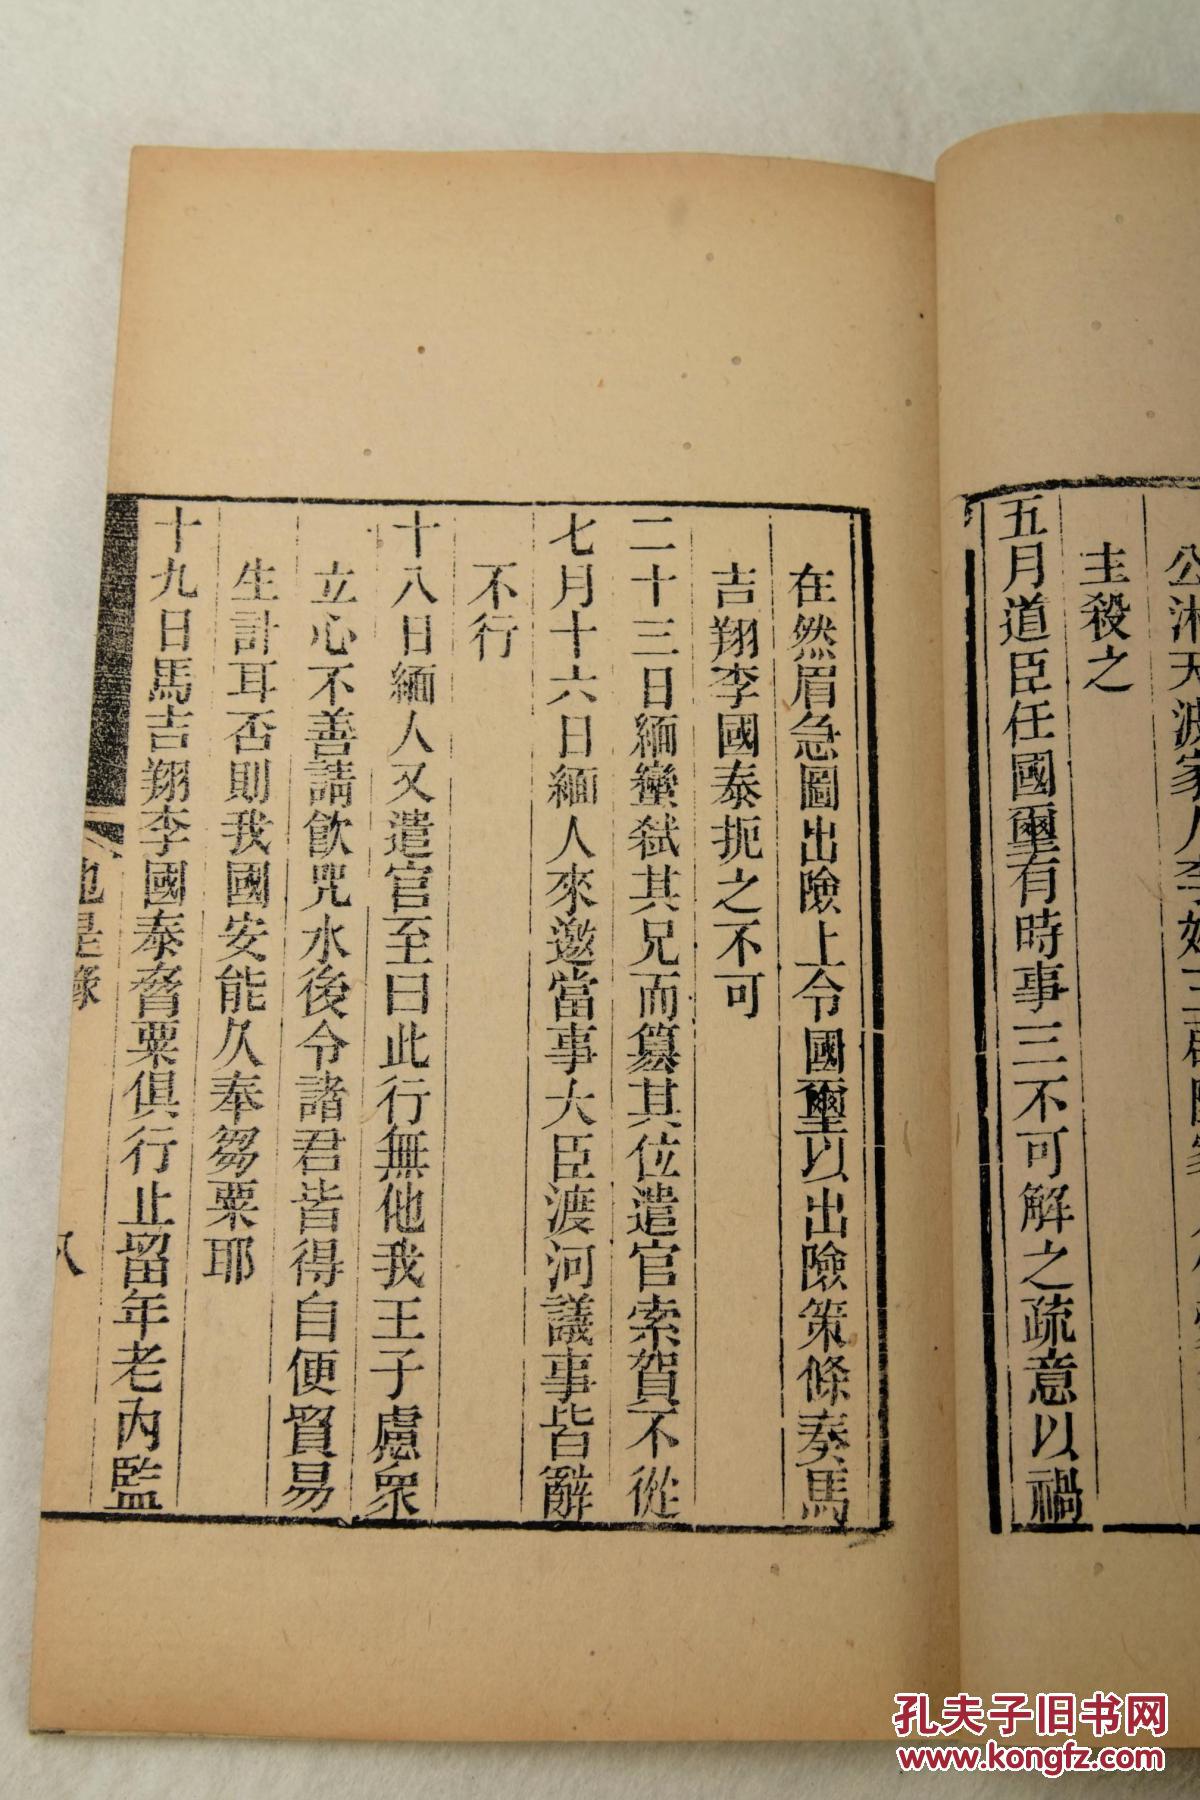 主殺之
五月道臣任國璽有時事三不可解之疏意以禍
在然眉急圖出險上令國璽以出險策條奏馬
吉翔李國泰扼之不可
二十三日緬蠻弒其兄而篡其位遣官索賀不從
七月十六日緬人來邀當事大臣渡河議事皆辭
不行
十八日緬人又遣官至曰此行無他我王子慮衆
立心不善請飲咒水後令諸君皆得自便貿易
生計耳否則我國安能久奉芻粟耶
十九日馬吉翔李國泰脅粟俱行止留年老內監
也是錄
八
孔夫子旧书网
www.kongfz.com